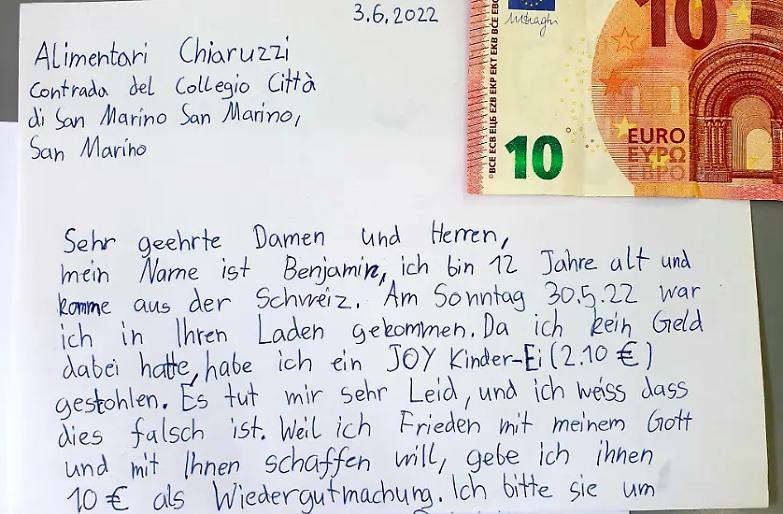 3.6.2022
Alimentari Chiaruzzi
Contrada del Collegio Città
di San Marino San Marino,
San Marino
10
10
EURO
ΕΥΡΩ
ЕВРО
BCE ECB ЕЦБ EZB EKP EKT EKB BĊE EBC
Sehr geehrte Damen und Herren,
mein Name ist Benjamin, ich bin 12 Jahre alt und
komme aus der Schweiz. Am Sonntag 30.5.22 war
ich in Ihren Laden gekommen. Da ich kein Geld
dabei hatte, habe ich ein JOY Kinder-Ei (2.10 €)
gestohlen. Es tut mir sehr Leid, und ich weiss dass
dies falsch ist. Weil ich Frieden mit meinem Gott
und mit Ihnen schaffen will, gebe ich ihnen
10 € als Wiedergutmachung. Ich bitte sie um